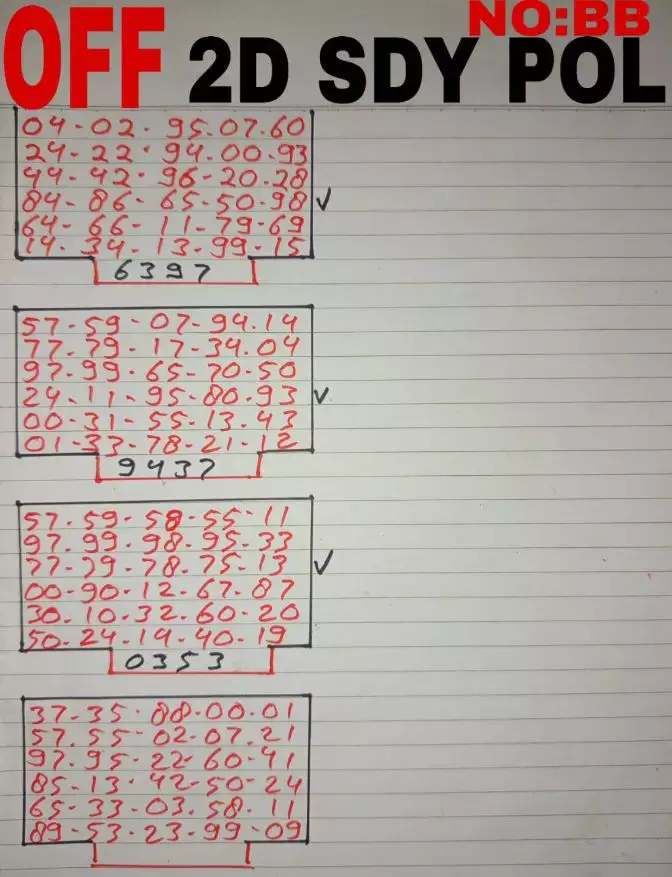 NO:BB
OFF 2D SDY POL
04-02. 95.07.60
24-22. 94.00.93
44-42. 96-20.28
84-86-65-50.98 ✓
64-66-11-79-69
14.34-13.99-15
6397
57-59-07-94.14
77.79-17-34.04
97.99.65-70-50
24.11-95-80.93 ✓
00-31-55.13.43
01-33-78-21-12
9437
57.59-58-55-11
97.99.98.95.33
77-79.78.75.13 ✓
00-90-12-67.87
30.10.32.60-20
50.24-14-40.19
0353
37-35.88.00.01
57.55-02-07.21
97.95-22-60-41
85-13.42-50-24
65-33-03.58.11
89-53.23.99-09